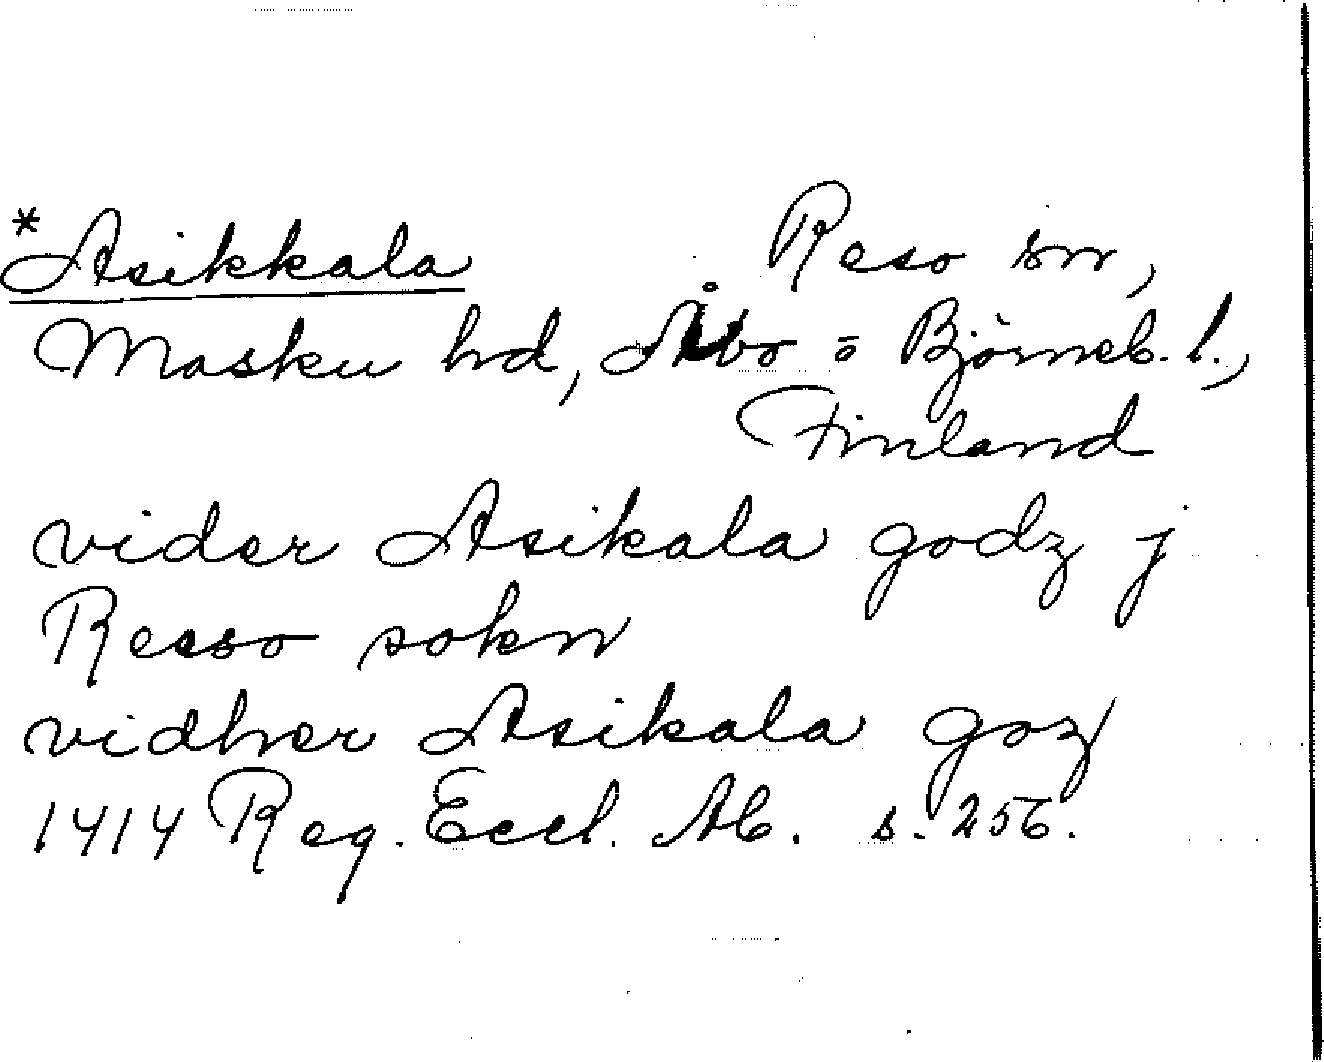 *Asikkala Reso sn,
Masku hd, Åbo o Björneb. l.,
Finland
vider Asikala godz j
Resso sokn
vidher Asikala goz
1414 Reg. Eccl. Ab. s. 256.